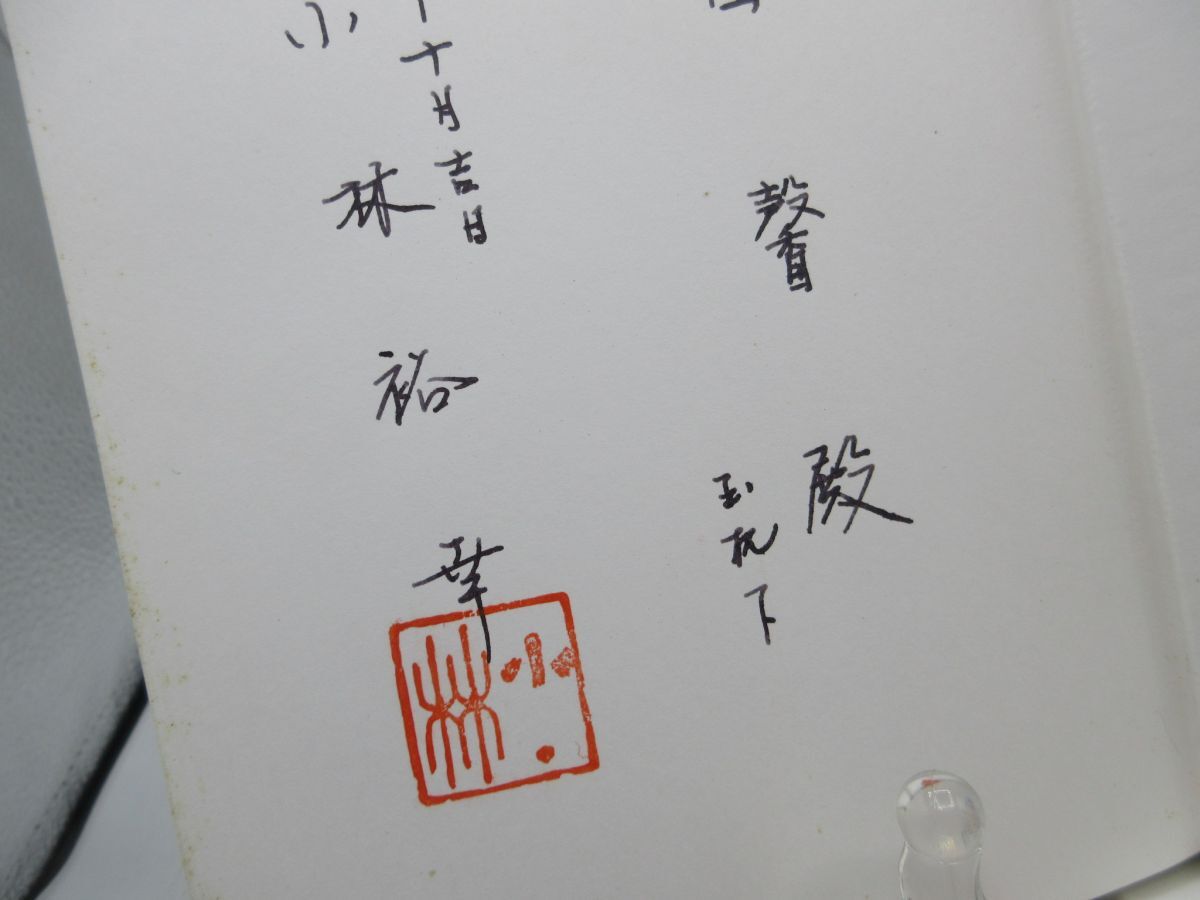 馨 殿
玉机下
十月吉日
小林裕幸
小林